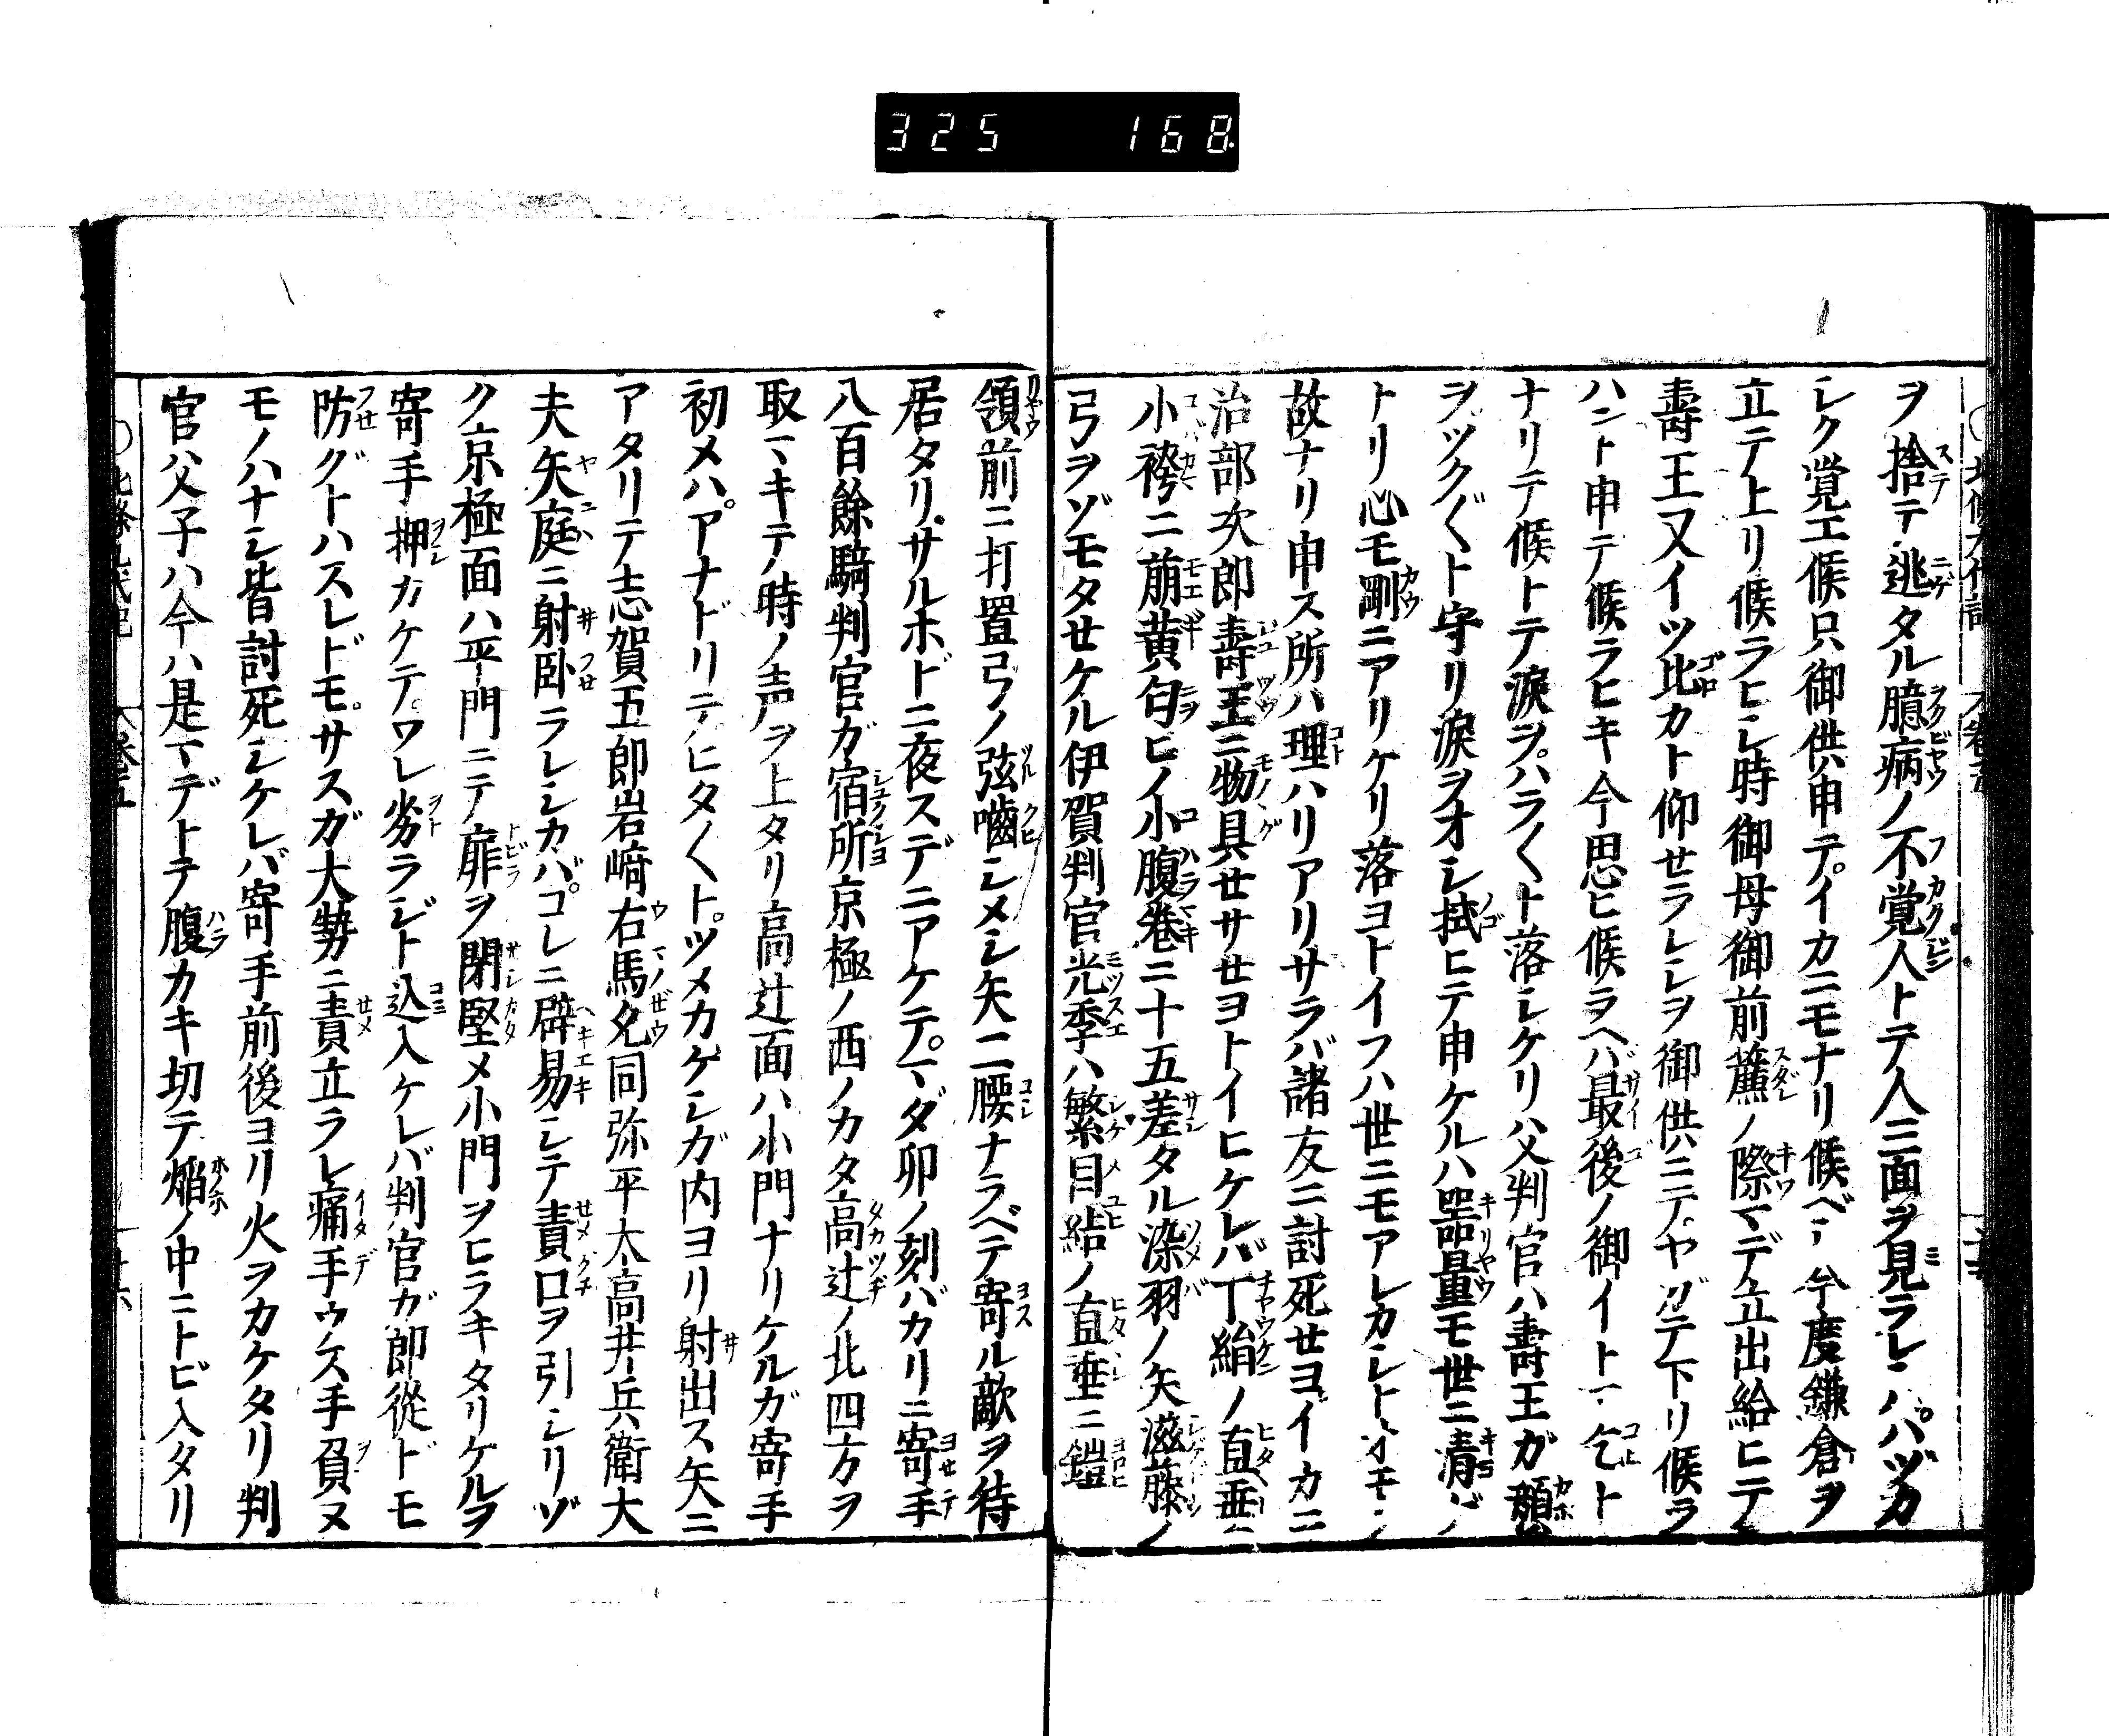 325 168
ヲ捨テ逃タル臆病ノ不覚人トテ人ニ面ヲ見ラレンハハヅカ
シク覚エ候只御供申テイカニモナリ候ベシ今度鎌倉ヲ
立テ上リ候ラヒシ時御母御前簾ノ際マデ立出給ヒテ
壽王又イツ比カト仰セラレシヲ御供ニテヤガテ下リ候ラ
ハント申テ候ラヒキ今思ヒ候ヲヘバ最後ノ御イトマ乞ト
ナリテ候トテ涙ヲハラ〱ト落シケリ父判官ハ壽王ガ顔
ヲツク〲ト守リ涙ヲオシ拭ヒテ申ケルハ器量モ世ニ
トリ心モ剛ニアリケリ落ヨトイフハ世ニモアレカシトオモフ
故ナリ申ス所ハ理ハリアリサラバ諸友ニ討死セヨイカニ
治部次郎壽王ニ物具セサセヨトイヒケレバ丁絹ノ直垂ニ
小袴ニ萠黄匂ヒノ小腹巻ニ十五差タル染羽ノ矢滋藤ノ
弓ヲゾモタセケル伊賀判官光季ハ繁目結ノ直垂ニ鎧
領前ニ打置弓ノ弦嚙シメシ矢二腰ナラベテ寄ル敵ヲ待
居タリサルホドニ夜スデニアケテマダ卯ノ刻バカリニ寄手
八百餘騎判官ガ宿所京極ノ西ノカタ高辻ノ北四方ヲ
取マキテ時ノ声ヲ上タリ高辻面ハ小門ナリケルガ寄手
初メハアナドリテヒタ〱トツメカケシガ内ヨリ射出ス矢ニ
アタリテ志賀五郎岩﨑右馬允同弥平太高井兵衛大
夫矢庭ニ射卧ラレシカバコレニ辟易シテ責口ヲ引シリゾ
ク京極面ハ平門ニテ扉ヲ閉堅メ小門ヲヒラキタリケルヲ
寄手押カケテワレ劣ラジト込入ケレバ判官ガ郎從ドモ
防グトハスレドモサスガ大勢ニ責立ラレ痛手ウケス手負ヌ
モノハナシ皆討死シケレバ寄手前後ヨリ火ヲカケタリ判
官父子ハ今ハ是マデトテ腹カキ切テ焔ノ中ニトビ入タリ